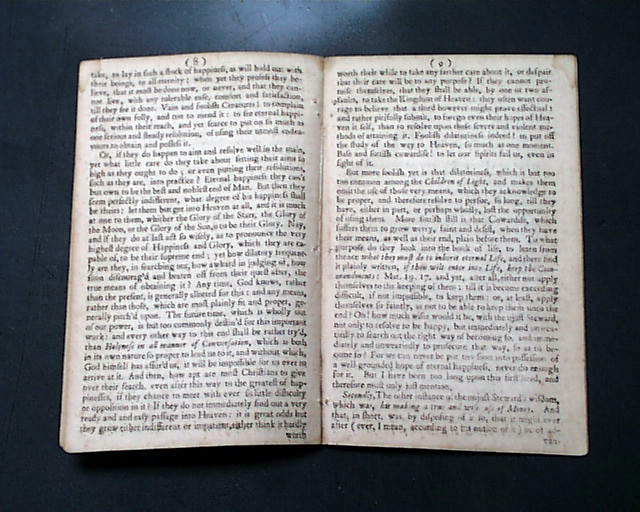 ( 8 )
take, to lay in such a stock of happiness, as will hold out with
their beings, to all eternity; when yet they profess they be-
lieve, that it must be done now, or never, and that they can-
not live, with any tolerable ease, comfort and satisfaction,
till they see it done. Vain and foolish Creatures! to complain
of their own folly, and not to mend it: to see eternal happi-
ness, within their reach, and yet scarce to put on so much as
one serious and steady resolution, of using their utmost endea-
vours to obtain and possess it.
Or, if they do happen to aim and resolve well in the main,
yet what little care do they take about setting their aims so
high as they ought to do; or even putting their resolutions,
such as they are, into practice? Eternal happiness they can't
but own to be the best and noblest end of Man. But then they
seem perfectly indifferent, what degree of his happiness shall
be theirs: let them but get into Heaven at all, and it is much
at one to them, whither the Glory of the Stars, the Glory of
the Moon, or the Glory of the Sun, is to be their Glory. Nay,
and if they do at last act so wisely, as to pronounce the very
highest degree of Happiness and Glory, which they are ca-
pable of, to be their supreme end; yet how dilatory frequent-
ly are they, in searching out, how awkard in judging of, how
soon discourag'd and beaten off from their quest after, the
true means of obtaining it? Any time, God knows, rather
than the present, is generally allotted for this: and any means,
rather than those, which are most plainly fit and proper, ge-
nerally pitch'd upon. The future time, which is wholly out
of our power, is but too commonly destin'd for this important
work: and every other way to this end shall be rather try'd,
than Holiness in all manner of Conversation, which is both
in its own nature so proper to lead us to it, and without which,
God himself has assur'd us, it will be impossible for us ever to
arrive at it. And then, how apt are most Christians to give
over their search, even after this way to the greatest of hap-
pinesses, if they chance to meet with ever so little difficulty
or opposition in it? If they do not immediately find out a very
ready and and easy passage into Heaven: it is great odds but
they grow either indifferent or impatient, either think it hardly
worth
( 9 )
worth their while to take any farther care about it, or despair
that their care will be to any purpose? If they cannot pro-
mise themselves, that they shall be able, by one or two as-
saults, to take the Kingdom of Heaven: they often want cou-
rage to believe that a third however might prove effectual;
and rather pitifully submit, to forego even their hopes of Hea-
ven it self, than to resolve upon those severe and violent me-
thods of attaining it. Foolish dilatoriness indeed! to put off
the study of the way to Heaven, so much as one moment.
Base and foolish cowardise! to let our Spirits fail us, even in
sight of it.
But more foolish yet is that dilatoriness, which is but too
too common among the Children of Light, and makes them
omit the use of those very means, which they acknowledge to
be proper, and therefore resolve to persue, so long, till they
have, either in part, or perhaps wholly, lost the opportunity
of using them. More foolish still is that Cowardise, which
suffers them to grow weary, faint and desist, when they have
their means, as well as their end, plain before them. To what
purpose do they look into the book of life, to learn from
thence what they must do to inherit eternal Life, and there find
it plainly written, if thou wilt enter into Life, keep the Com-
mandments: Mat. 19. 17. and yet, after all, either not apply
themselves to the keeping of them: till it is become exceeding
difficult, if not impossible, to keep them: or, at least, apply
themselves so faintly, as not to be able to keep them unto the
end? Oh! how much wiser would it be, with the unjust Steward,
not only to resolve to be happy, but immediately and
to search out the right way of becoming so, and imme-
diately and unweariedly to prosecute that way, so as to be-
come so! For we can never be put too soon into possession of
a well grounded hope of eternal happiness, never do enough
for it. But I have been too long upon this first head, and
therefore must only just mention,
Secondly, The other instance of the unjust Steward's wisdom,
which was, his making a true and wise use of Money. And
that, in short, was, by disposing of it so, that it might ever
after (ever, I mean, according to his notion of it) be of ad-